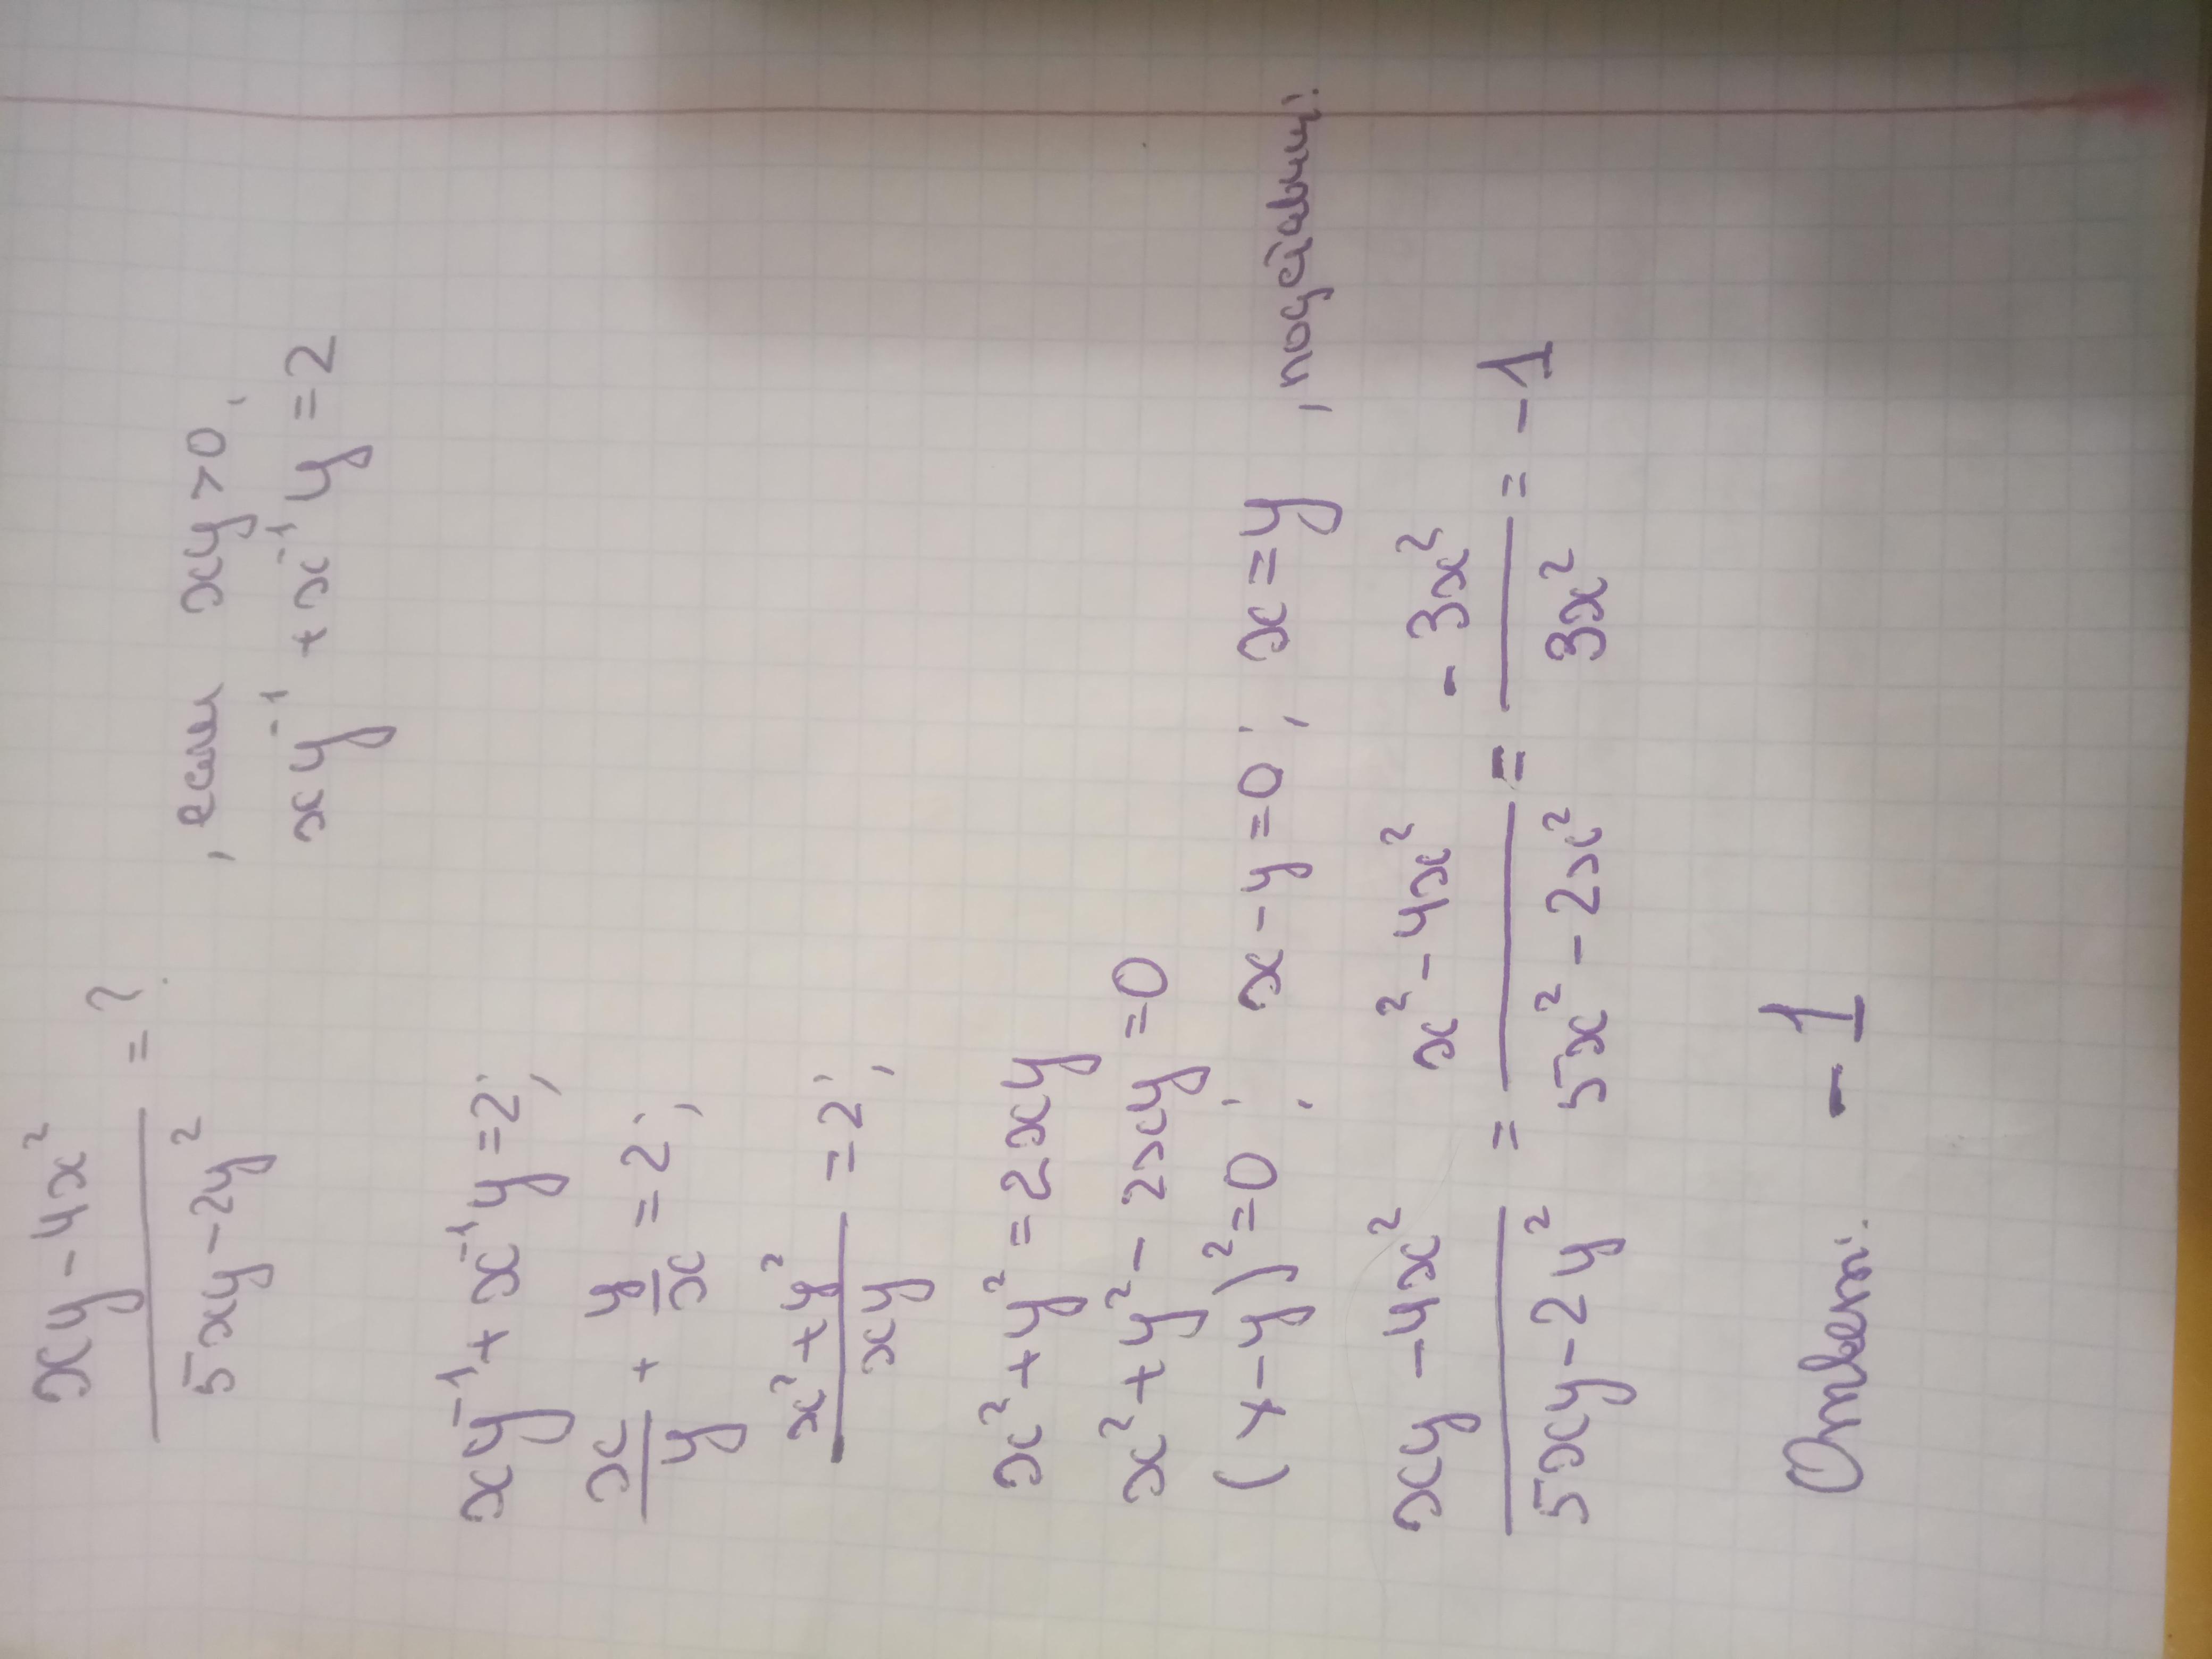 (xy - 4x²)/(5xy - 2y²) = ? , если xy > 0,
xy⁻¹ + x⁻¹y = 2
xy⁻¹ + x⁻¹y = 2;
x/y + y/x = 2;
(x² + y²)/(xy) = 2;
x² + y² = 2xy
x² + y² - 2xy = 0
(x - y)² = 0; x - y = 0; x = y, подставим:
(xy - 4x²)/(5xy - 2y²) = (x² - 4x²)/(5x² - 2x²) = (-3x²)/(3x²) = -1
Ответ: -1